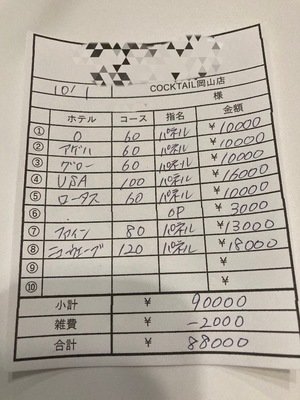 COCKTAIL岡山店
10/1 様
ホテル コース 指名 金額
① O 60 パネル ¥10000
② アゲハ 60 パネル ¥10000
③ グロー 60 パネル ¥10000
④ USA 100 パネル ¥16000
⑤ ロータス 60 パネル ¥10000
⑥ OP ¥3000
⑦ ファイン 80 パネル ¥13000
⑧ ニューウェーブ 120 パネル ¥18000
⑨
⑩
小計 ¥ 90000
雑費 ¥ -2000
合計 ¥ 88000